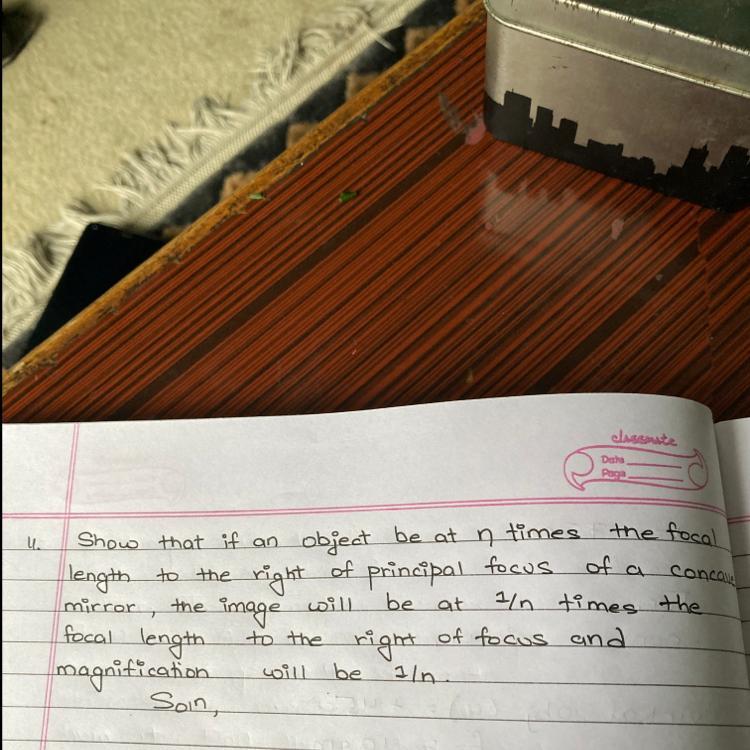 classmate
Date
Page
4. Show that if an object be at n times the focal
length to the right of principal focus of a concave
mirror, the image will be at 1/n times the
focal length to the right of focus and
magnification will be 1/n.
Soln,